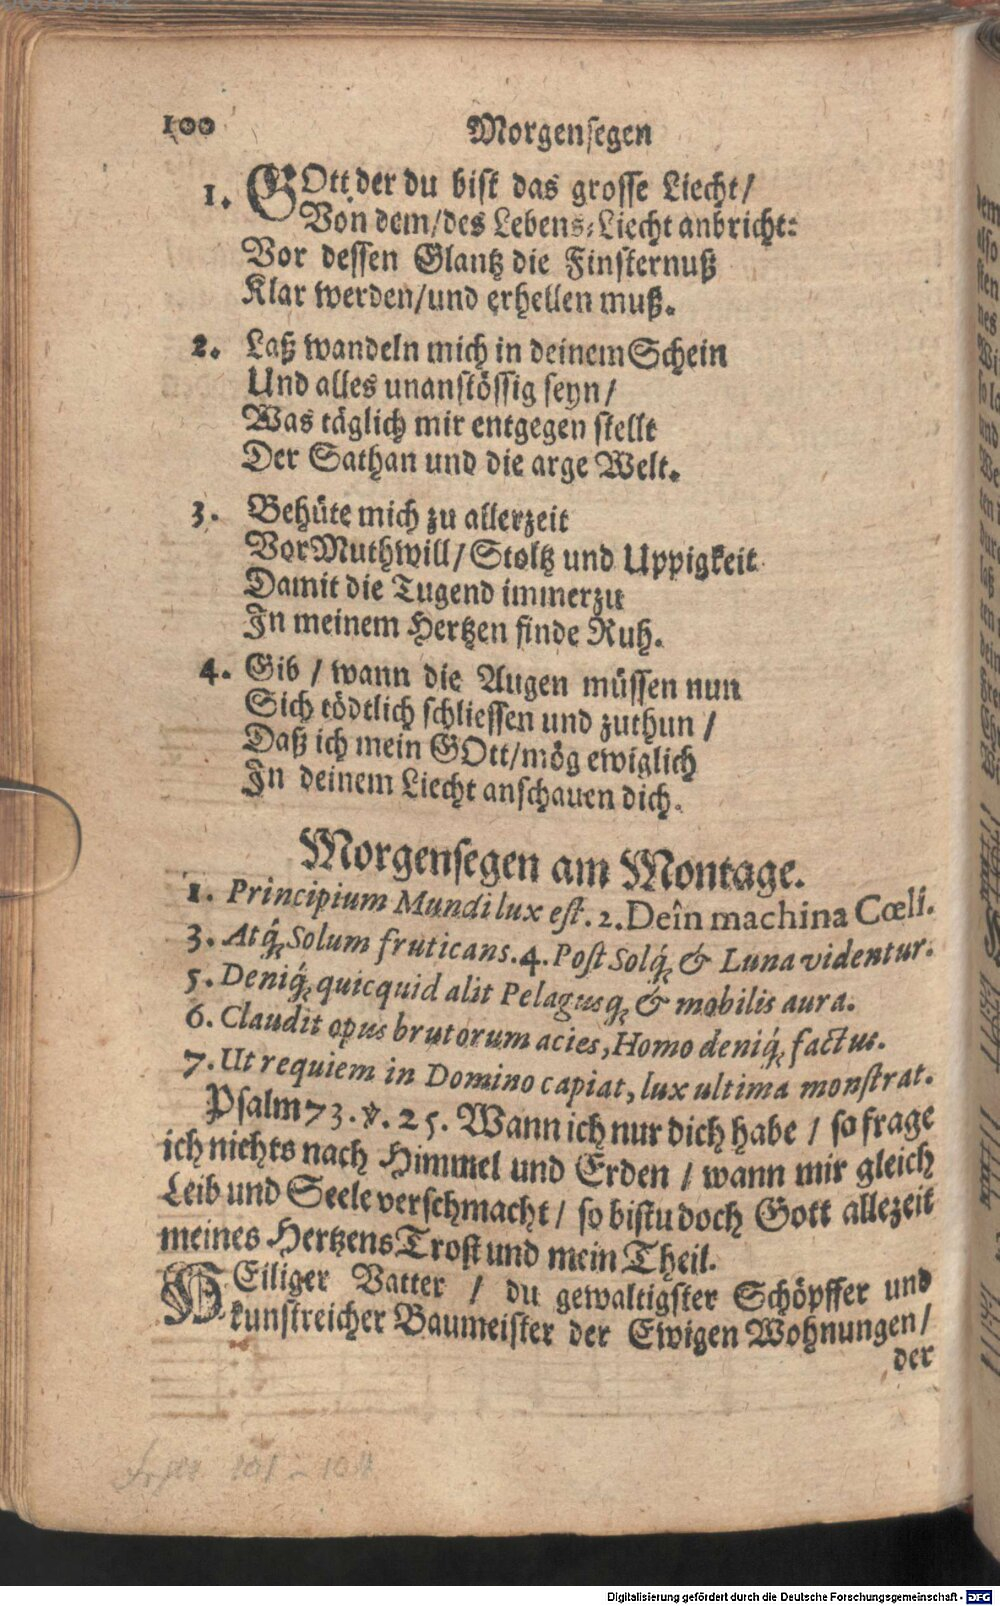 100 Morgensegen
1. GOtt der du bist das grosse Liecht/
Von dem/des Lebens-Liecht anbricht:
Vor dessen Glantz die Finsternuß
Klar werden/und erhellen muß.
2. Laß wandeln mich in deinem Schein
Und alles unanstössig seyn/
Was täglich mir entgegen stellt
Der Sathan und die arge Welt.
3. Behüte mich zu allerzeit
Vor Muthwill/Stoltz und Uppigkeit
Damit die Tugend immerzu
In meinem Hertzen finde Ruh.
4. Gib / wann die Augen müssen nun
Sich tödtlich schliessen und zuthun /
Daß ich mein GOtt/mög ewiglich
In deinem Liecht anschauen dich.
Morgensegen am Montage.
1. Principium Mundi lux est. 2. Dein machina Cœli.
3. Atq́; Solum fruticans. 4. Post Solq́; & Luna videntur.
5. Deniq́; quicquid alit Pelagusq; & mobilis aura.
6. Claudit opus brutorum acies, Homo deniq́; factus.
7. Ut requiem in Domino capiat, lux ultima monstrat.
Psalm 73. ℣. 25. Wann ich nur dich habe / so frage
ich nichts nach Himmel und Erden / wann mir gleich
Leib und Seele verschmacht / so bistu doch Gott allezeit
meines Hertzens Trost und mein Theil.
HEiliger Vatter / du gewaltigster Schöpffer und
kunstreicher Baumeister der Ewigen Wohnungen/
der
101 - 104
Digitalisierung gefördert durch die Deutsche Forschungsgemeinschaft - DFG